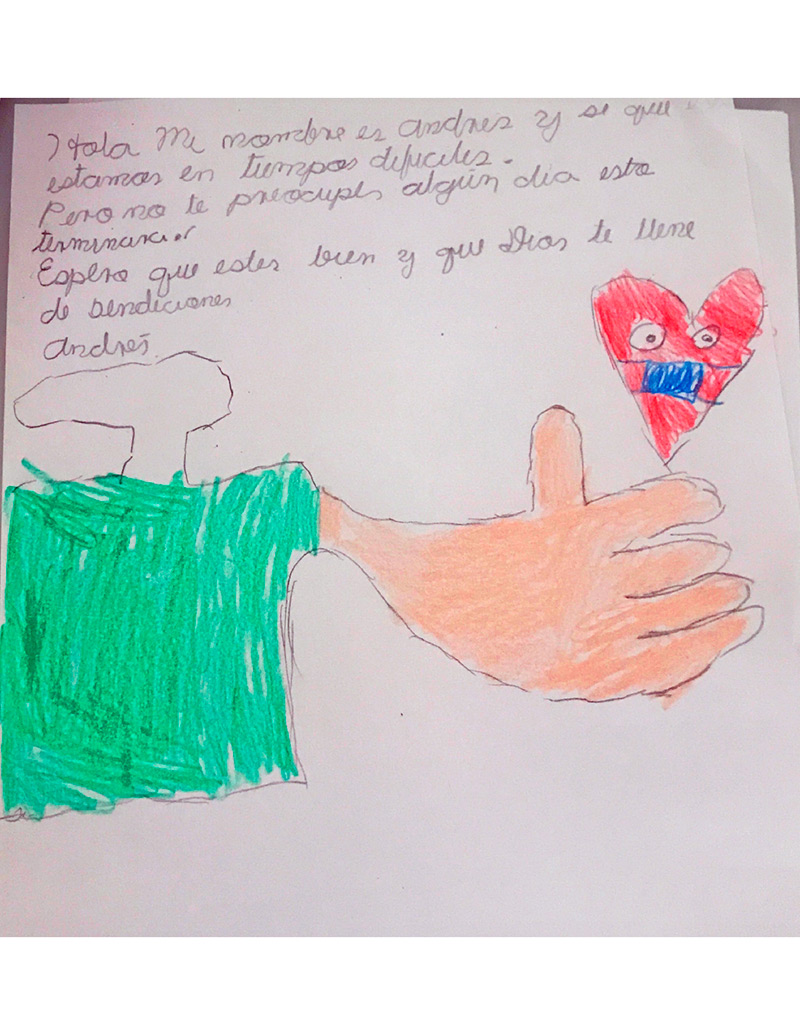 Hola Mi nombre es andres y se que
estamos en tiempos dificiles.
Pero no te preocupes algún dia esto
terminara.
Espero que estes bien y que Dios te llene
de bendiciones
andres